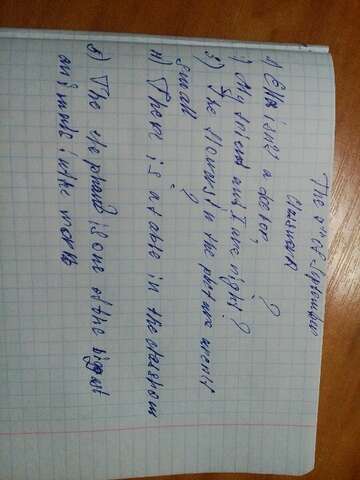 The of September
Classwork
1) Ella isn't a doctor, ?
2) My friend and I are right?
3) The flowers in the picture arent
small ?
4) There is a table in the classroom
5) The elephant is one of the bigest
animals in the world